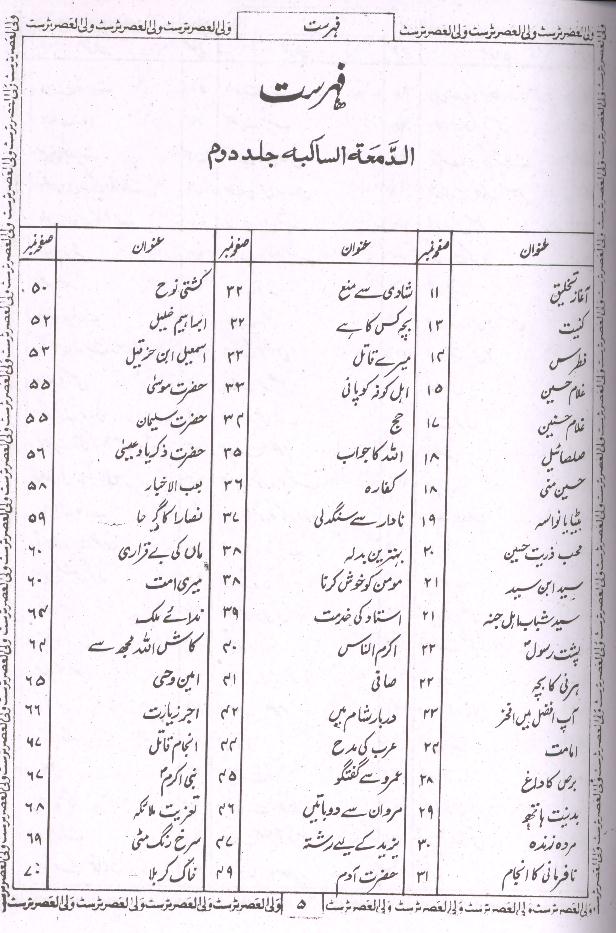 ولی العصر ٹرسٹ ولی العصر ٹرسٹ ولی العصر ٹرسٹ فہرست ولی العصر ٹرسٹ ولی العصر ٹرسٹ ولی العصر ٹرسٹ
فہرست
الدّمعۃ الساکبہ جلد دوم
عنوان صفحہ نمبر عنوان صفحہ نمبر عنوان صفحہ نمبر
آغاز تخلیق ۱۱ شادی سے منع ۳۲ کشتی نوح ۵۰
کنیت ۱۳ بچہ کس کا ہے ۳۲ ابراہیم خلیل ۵۲
فطرس ۱۴ میرے قاتل ۳۳ اسمعیل ابن حزقیل ۵۳
غلام حسین ۱۵ اہل کوفہ کو پانی ۳۳ حضرت موسیٰ ۵۵
غلام حسنین ۱۷ حج ۳۴ حضرت سلیمان ۵۵
صلصائیل ۱۸ اللہ کا جواب ۳۵ حضرت ذکریا و عیسیٰ ۵۶
حسین منی ۱۸ کفارہ ۳۶ کعب الاخبار ۵۸
بیٹا یا نواسہ ۱۹ نادار سے سنگدلی ۳۷ نصارا کا گرجا ۵۹
محب ذریت حسین ۲۰ بہترین بدلہ ۳۸ ماں کی بے قراری ۶۰
سید ابن سید ۲۱ مومن کو خوش کرنا ۳۸ میری امت ۶۰
سید شباب اہل جنہ ۲۱ استاد کی خدمت ۳۹ ندائے ملک ۶۴
پشت رسولؐ ۲۲ اکرم الناس ۴۰ کاش اللہ مجھ سے ۶۴
ہرنی کا بچہ ۲۲ صافی ۴۱ امین وحی ۶۵
آپ افضل ہیں افخر ۲۳ دربار شام میں ۴۲ اجر زیارت ۶۶
امامت ۲۴ عرب کی مدح ۴۴ انجام قاتل ۶۷
برص کا داغ ۲۸ عمرو سے گفتگو ۴۵ نبی اکرمؐ ۶۷
بدنیت ہاتھ ۲۹ مروان سے دو باتیں ۴۶ تعزیت ملائکہ ۶۸
مردہ زندہ ۳۰ یزید کے لیے رشتہ ۴۷ سرخ رنگ مٹی ۶۹
نافرمانی کا انجام ۳۱ حضرت آدم ۴۹ خاک کربلا ۷۰
ولی العصر ٹرسٹ ولی العصر ٹرسٹ ولی العصر ٹرسٹ ولی العصر ٹرسٹ ۵ ولی العصر ٹرسٹ ولی العصر ٹرسٹ ولی العصر ٹرسٹ ولی العصر ٹرسٹ